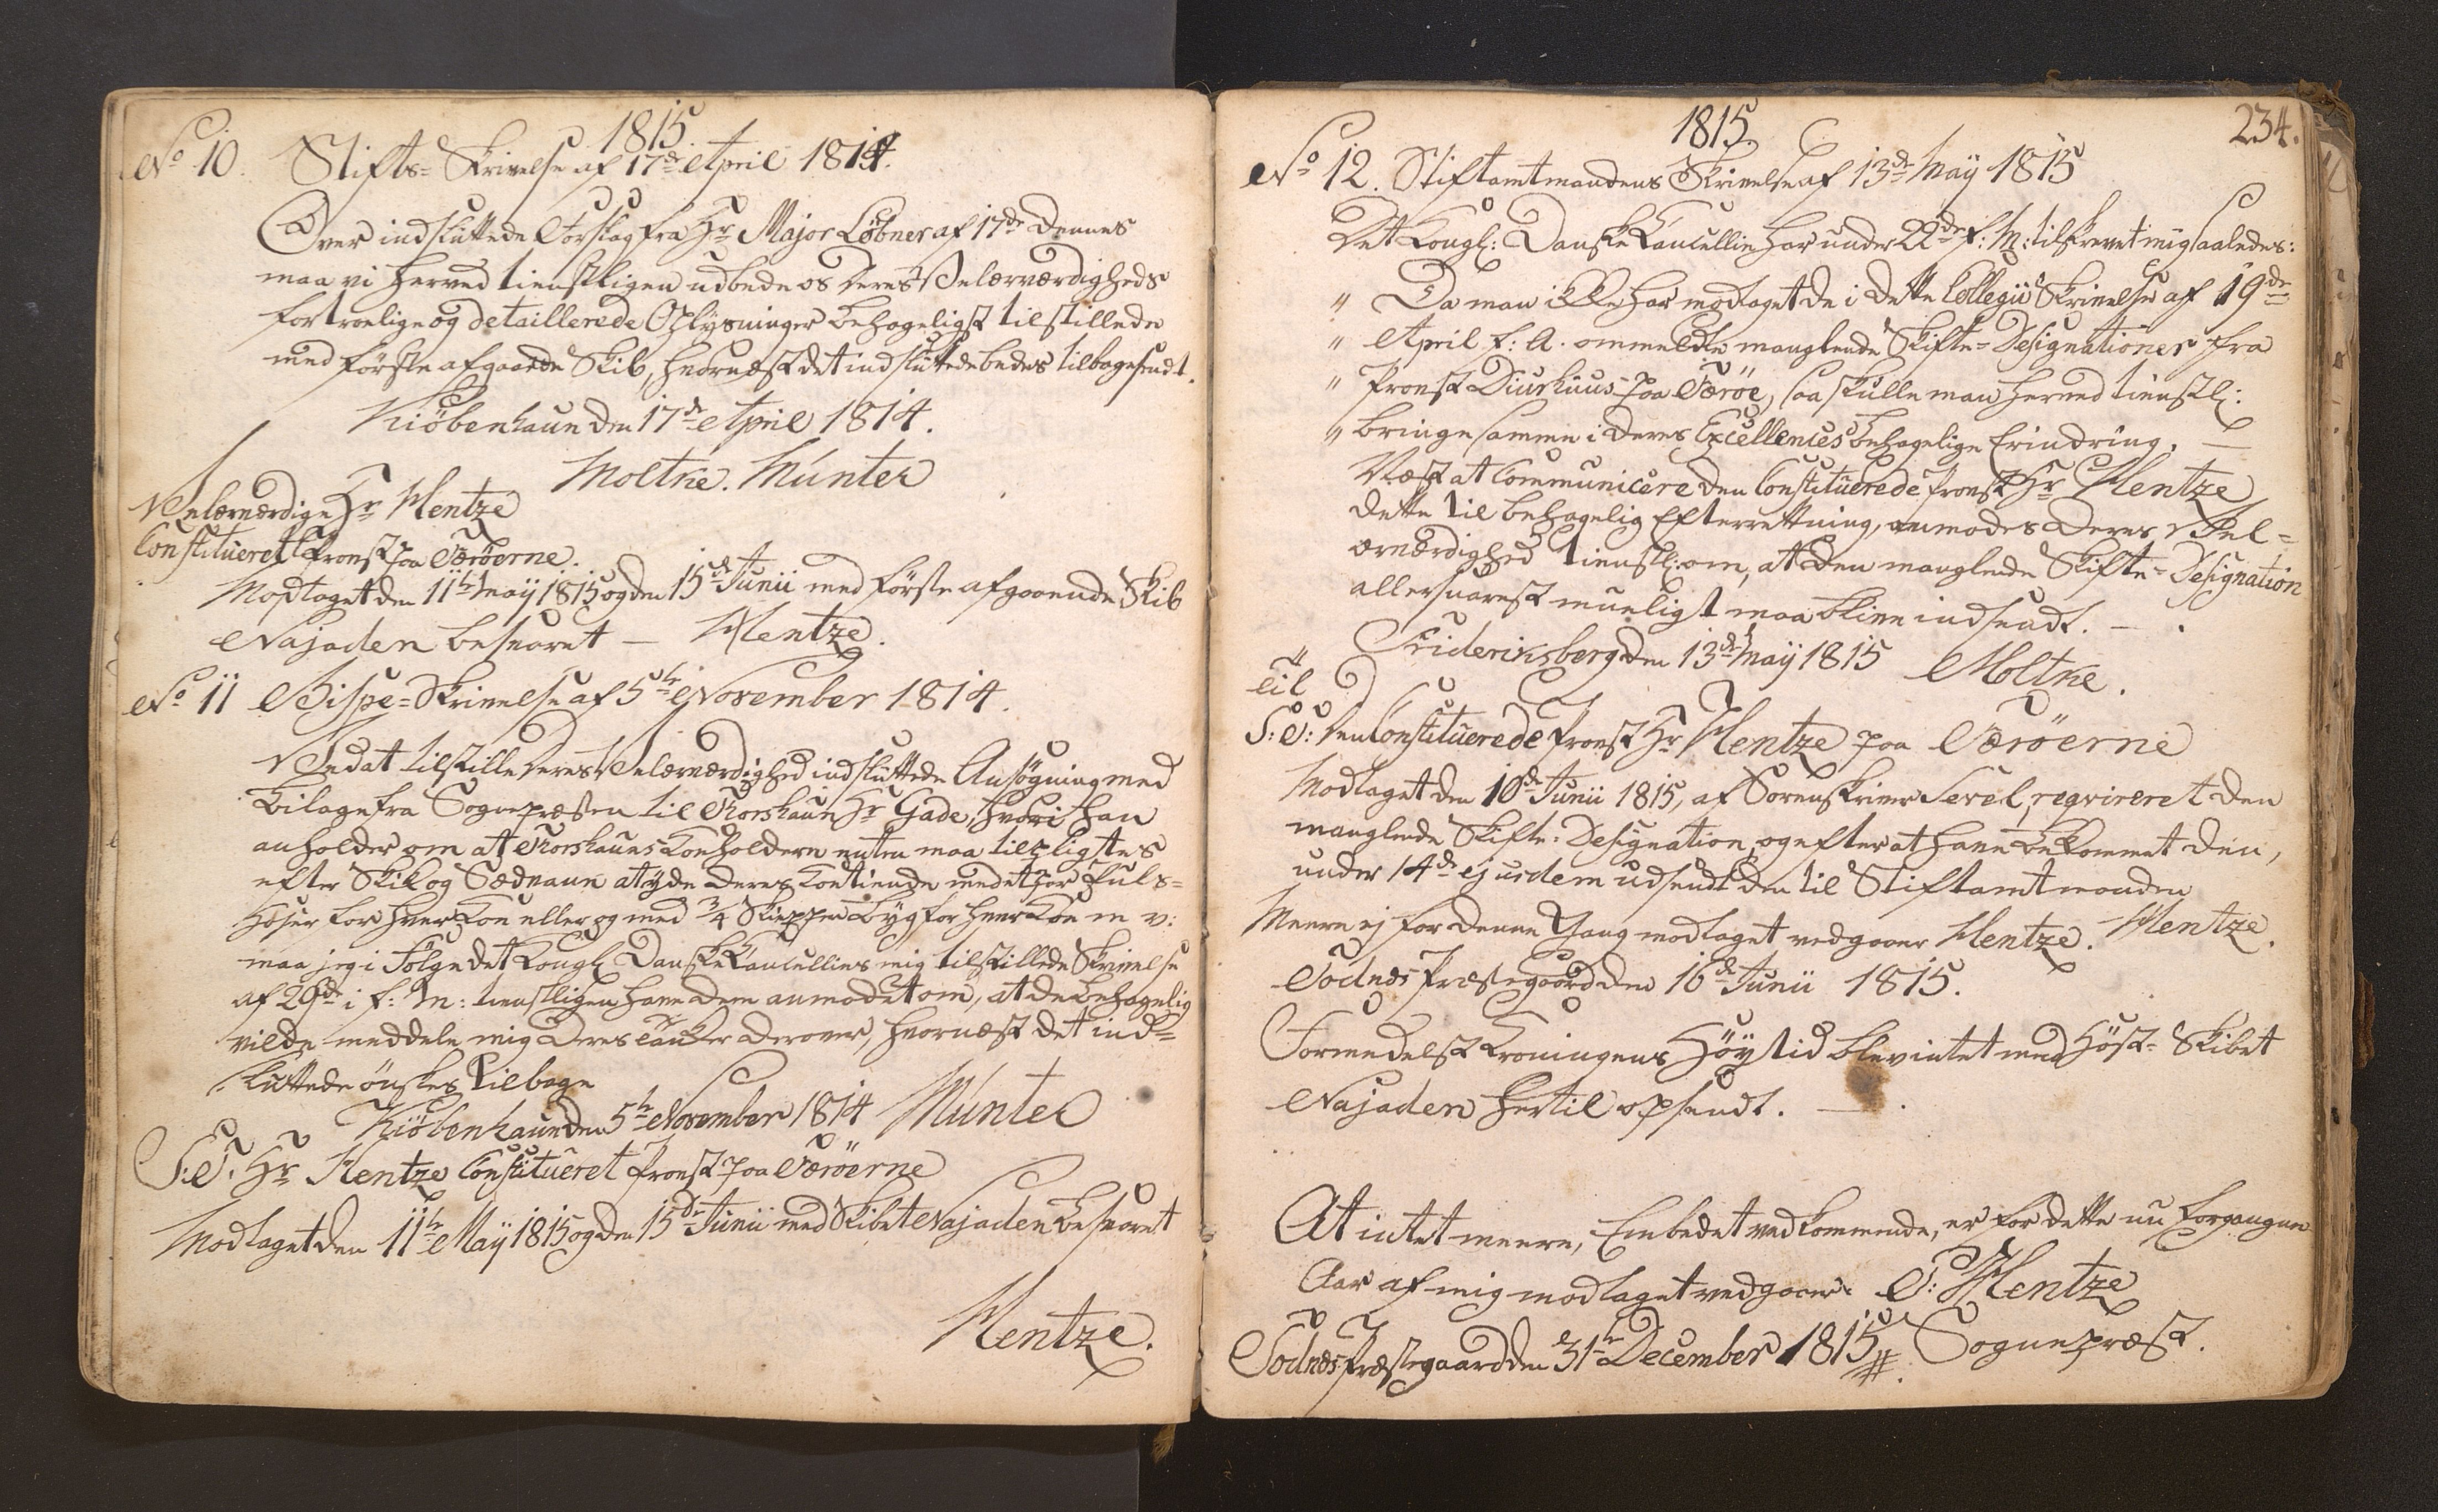 1815.
No 10. Stifts-Skrivelse af 17de April 1814.
Over indsluttede Forslag fra Hr Major Löbner af 17de Dennes
maa vi herved tienstligen udbede os Deres Velærværdigheds
fortroelige og detaillerede Oplysninger behageligst tilstillede
med förste afgaaende Skib, hvornæst det indsluttede bedes tilbagesendt.
Kiöbenhavn den 17de April 1814.
Moltke. Münter
Velærværdige Hr Hentze
Constitueret Provst paa Færöerne.
Modtaget den 11te May 1815 og den 15de Junii med förste afgaaende Skib
Najaden besvaret — Hentze.
No 11 Bispe-Skrivelse af 5te November 1814.
Ved at tilstille Deres Velærværdighed indsluttede Ansögning med
Bilage fra Sognepræsten til Thorshavn Hr Gade, hvori han
anholder om at Thorshavns Koeholdere enten maa tilpligtes
efter Skik og Sædvane at yde deres Koetiende med et Par Huls-
Hoser for hver Koe eller og med 3/4 Skieppe Byg for hver Koe m v:
maa jeg i Fölge det Kongl Danske Cancellies mig tilstillede Skrivelse
af 29de i f: M: tienstligen have Dem anmodet om, at De behagelig
vilde meddele mig Deres Tanker derover, hvornæst det ind-
sluttede önskes tilbage
Kiöbenhavn den 5te November 1814 Münter
S: T: Hr Hentze Constitueret Provst paa Færöerne
Modtaget den 11te May 1815 og den 15de Junii med Skibet Najaden besvaret
Hentze.
1815. 234.
No 12. Stiftamtmandens Skrivelse af 13de May 1815
Det Kongl: Danske Cancellie har under 22de f: M: tilskrevet mig saaledes:
" Da man ikke har modtaget de i dette Collegii Skrivelse af 19de
" April f: A. ommeldte manglende Skifte-Designationer fra
" Provst Diurhuus paa Færöe, saa skulle man herved tienstl:
" bringe samme i Deres Excellences behagelige Erindring. —
Næst at Communicere den Constituerede Provst Hr Hentze
dette til behagelig Efterretning, anmodes Deres Vel-
ærværdighed tienstl: om, at den manglende Skifte-Designation
allersnarest mueligst maa blive indsendt. —
Frideriksberg den 13de May 1815 Moltke.
Til
S: T: Den Constituerede Provst Hr Hentze paa Færöerne
Modtaget den 10de Junii 1815, af Sorenskriver Sevel reqvireret den
manglende Skifte-Designation, og efter at have bekommet den,
under 14de ejusdem udsendt den til Stiftamtmanden
Meere ej for denne Gang modtaget vedgaaer Hentze. Hentze.
Todnes Præstegaard den 16de Junii 1815.
Formedelst Kroningens Höytid blev intet med Höst-Skibet
Najaden hertil opsendt. —
At intet meere, Embedet vedkommende, er for dette nu forgangne
Aar af mig modtaget vedgaaer. P: Hentze
Todnes Præstegaard den 31te December 1815. Sognepræst.